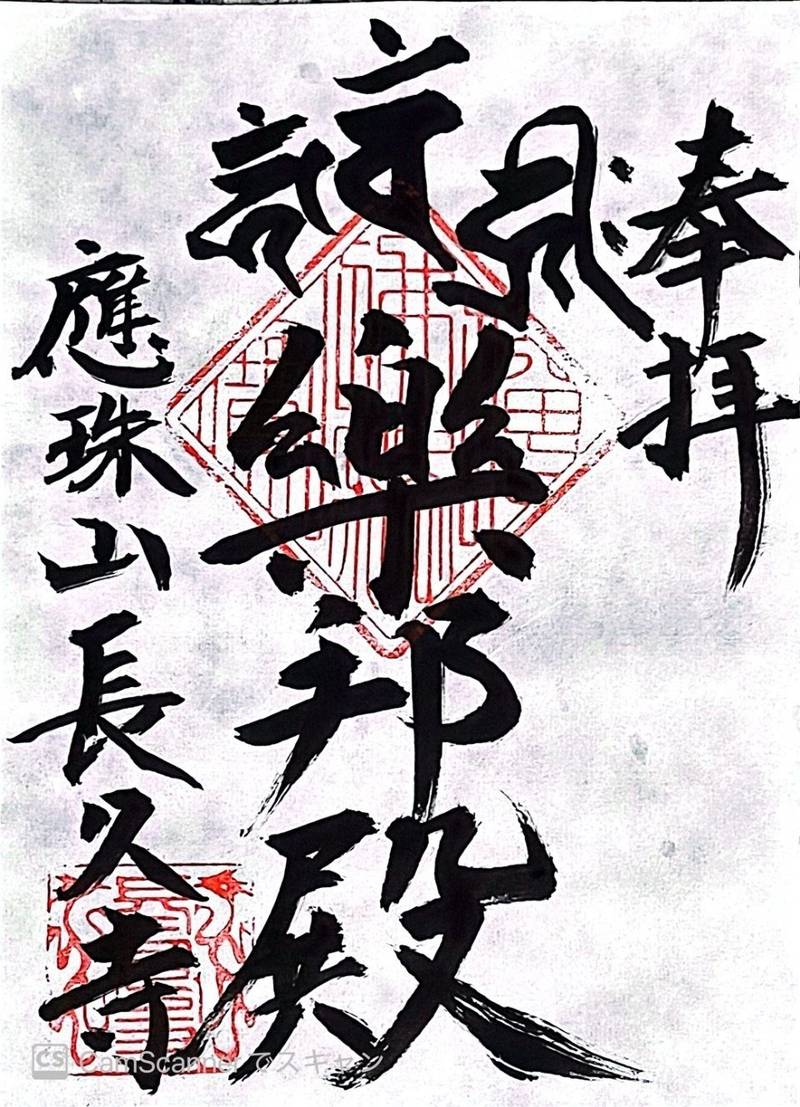 奉拝
樂邦殿
應珠山長久寺
CS CamScanner でスキャン